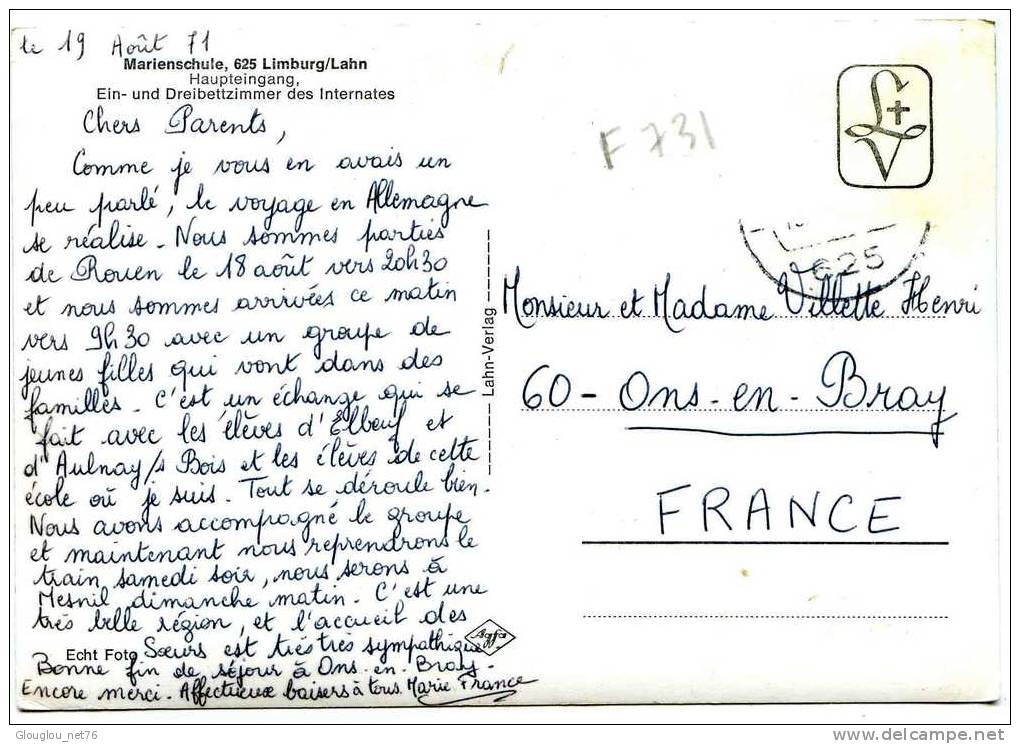 le 19 Août 71
Marienschule, 625 Limburg/Lahn
Haupteingang,
Ein- und Dreibettzimmer des Internates
Chers Parents,
Comme je vous en avais un
peu parlé, le voyage en Allemagne
se réalise. Nous sommes parties
de Rouen le 18 août vers 20h30
et nous sommes arrivées ce matin
vers 9h30 avec un groupe de
jeunes filles qui vont dans des
familles. C'est un échange qui se
fait avec les élèves d'Elbeuf et
d'Aulnay/s Bois et les élèves de cette
école où je suis. Tout se déroule bien.
Nous avons accompagné le groupe
et maintenant nous reprendrons le
train samedi soir, nous serons à
Mesnil dimanche matin. C'est une
très belle région, et l'accueil des
Echt Foto Sœurs est très très sympathique.
Agfa
Bonne fin de séjour à Ons-en-Bray.
Encore merci. Affectueux baisers à tous. Marie France
Lahn-Verlag
F 731
L+V
625
Monsieur et Madame Villette Henri
60 - Ons-en-Bray
FRANCE
Glouglou_net76
delcampe.net